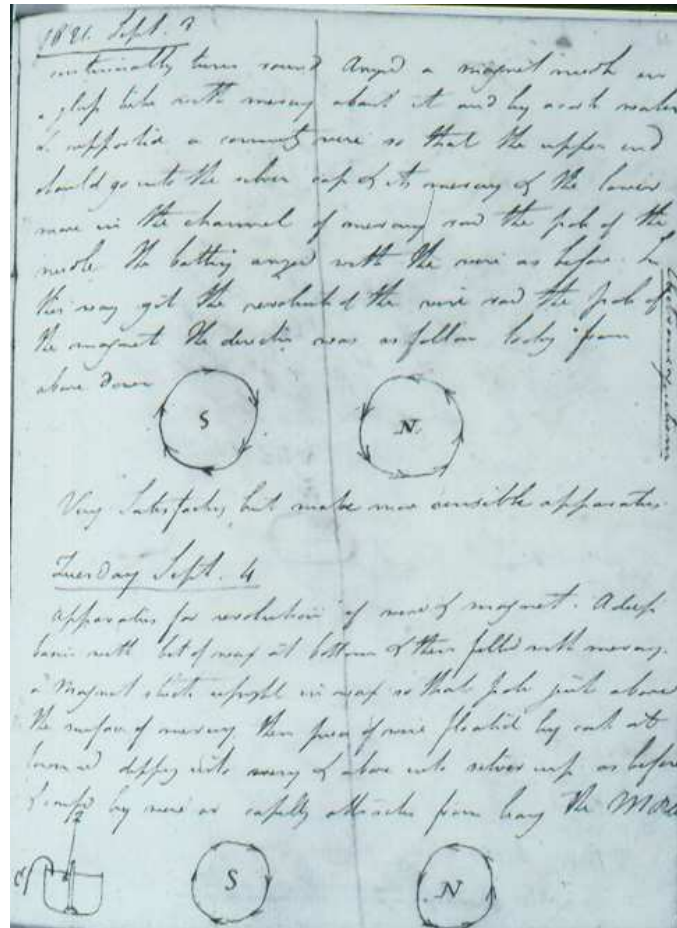 1821 Sept. 3
continually turns round Arranged a magnet needle in
a glass tube with mercury about it and by a cork water
& supported a connecting wire so that the upper end
should go into the silver cup & its mercury & the lower
move in the channel of mercury round the pole of the
needle The battery arranged with the wire as before. In
this way got the revolution of the wire round the pole of
the magnet The direction was as follow looking from
above down
S N
Very Satisfactory but make more sensible apparatus
Tuesday Sept. 4
apparatus for revolution of wire & magnet. A deep
basin with bit of wax at bottom & then filled with mercury
a Magnet stuck upright in wax so that pole just above
the surface of mercury then piece of wire floated by cork at
lower end dipping into mercury & above into silver cup as before
by wire or from the
S N